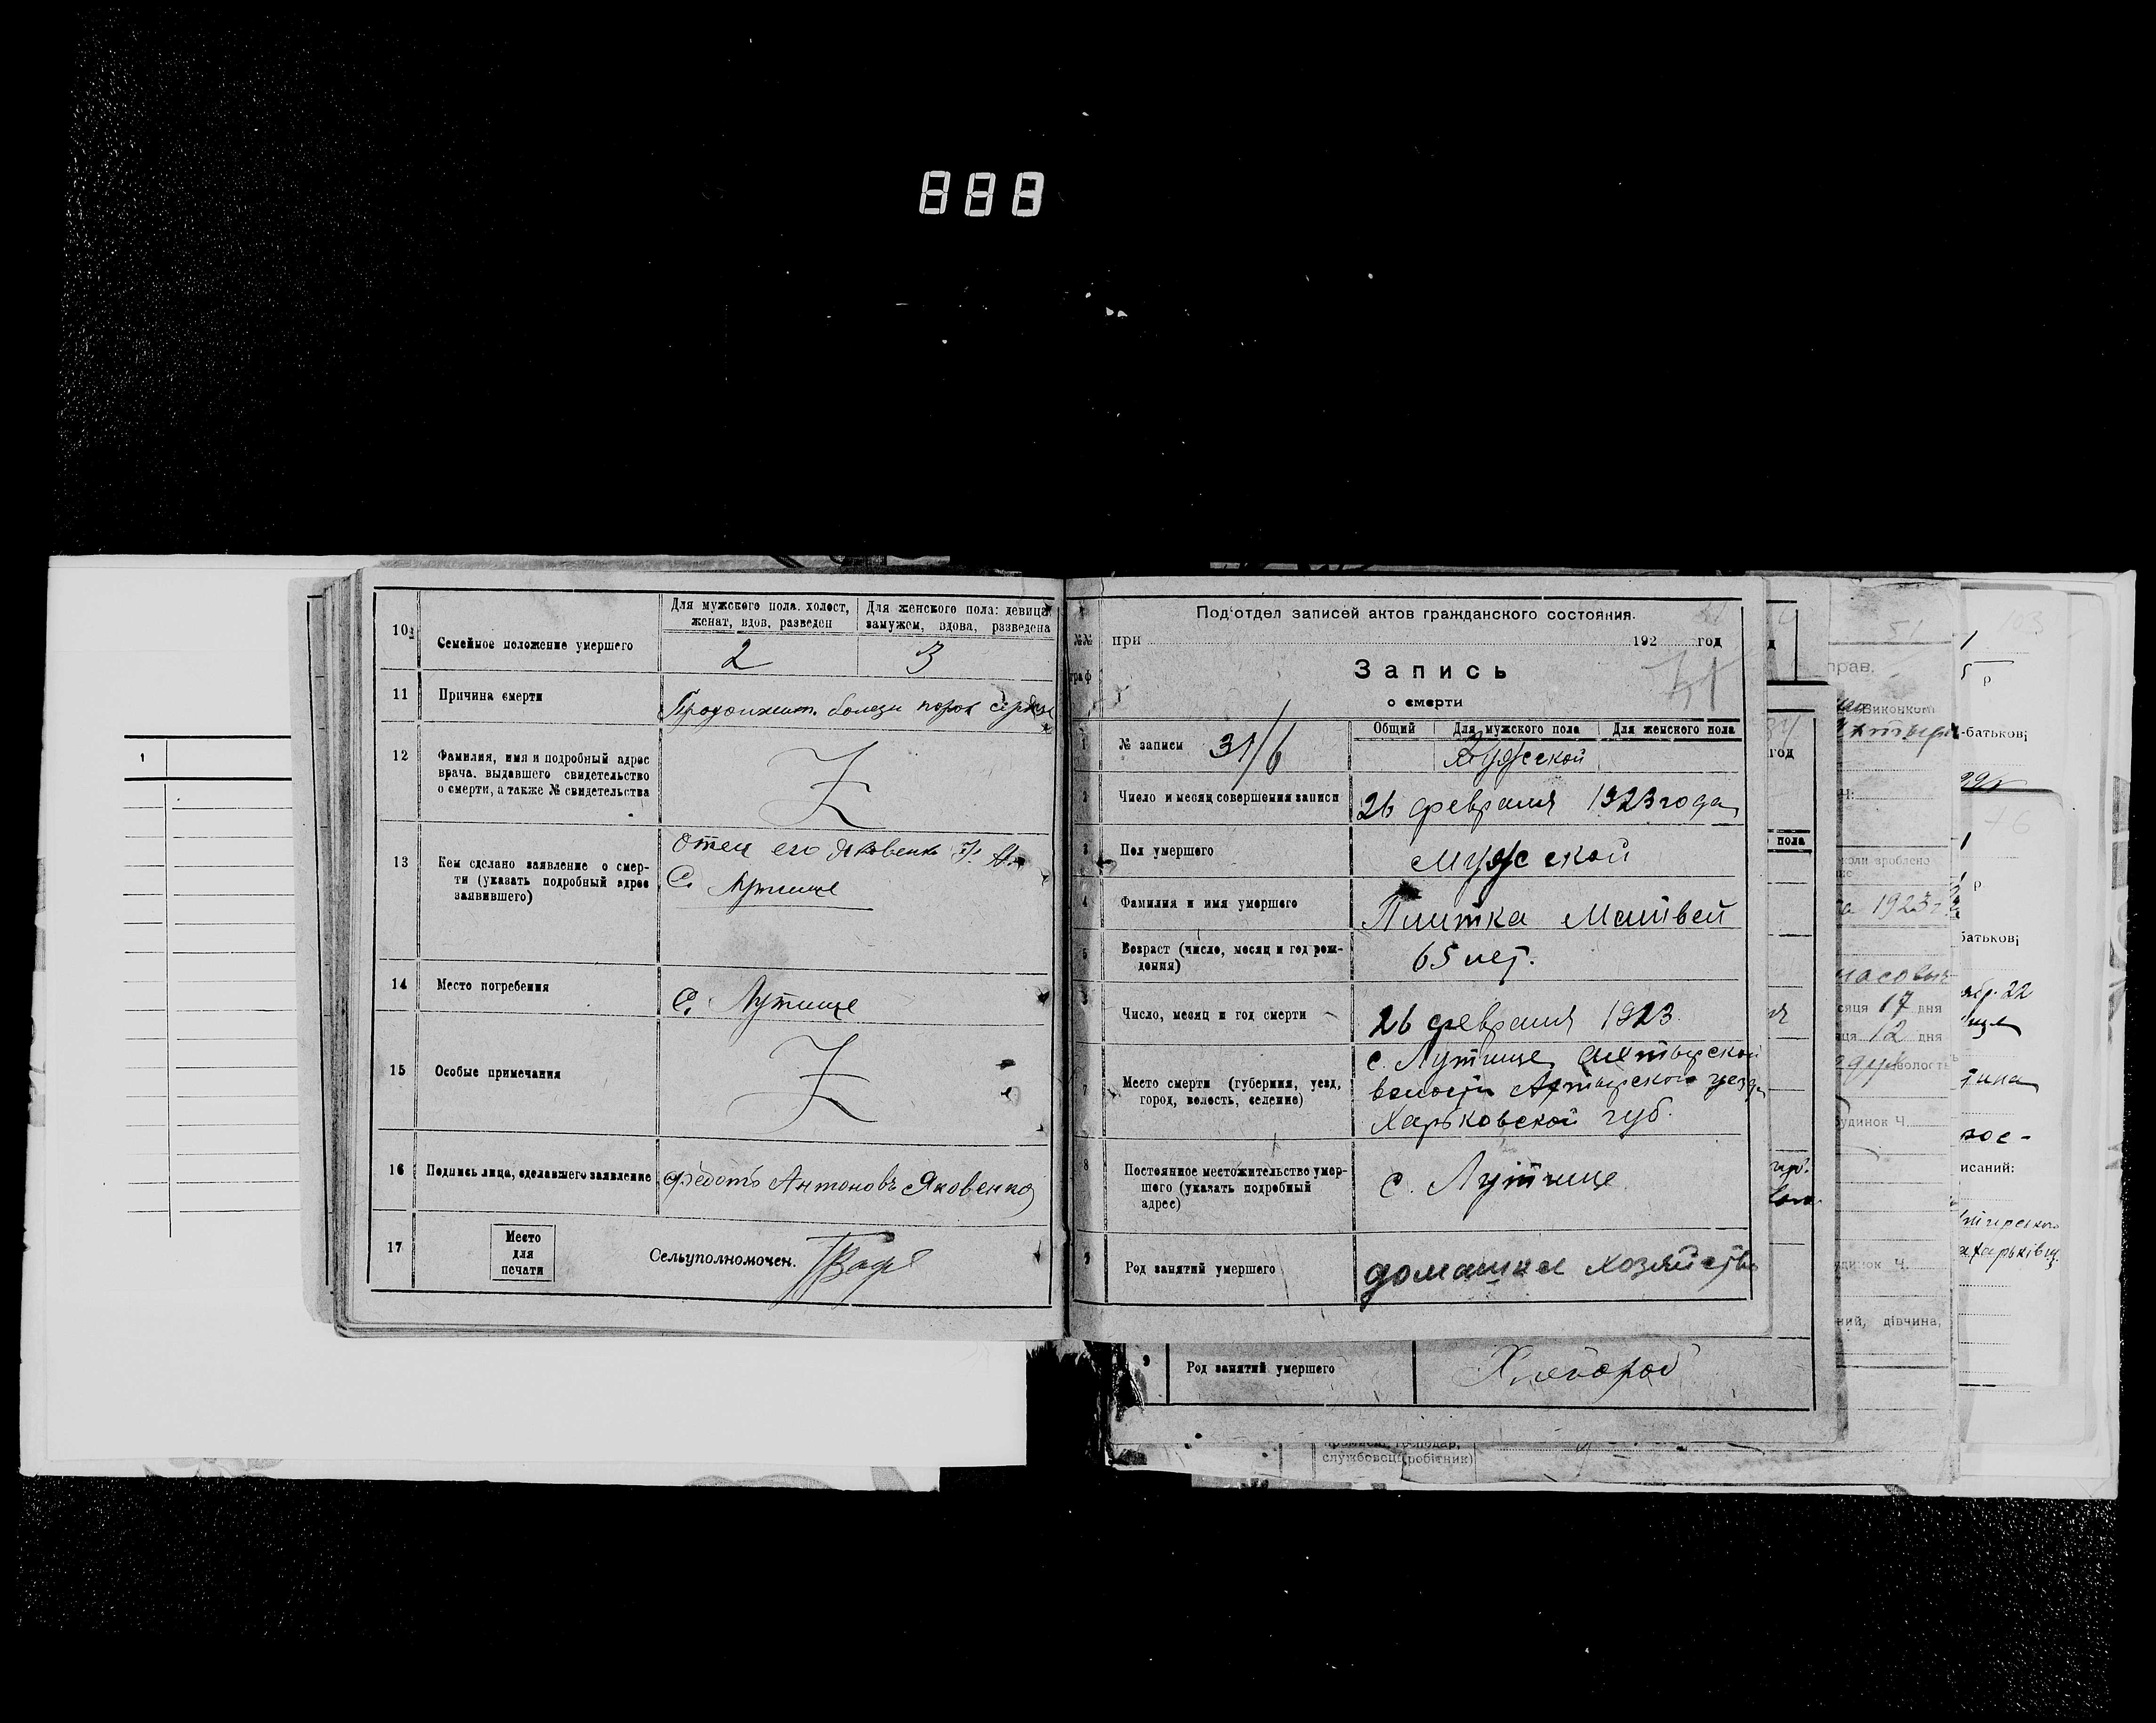 888
10
Семейное положение умершего
Для мужского пола. холост,
женат, вдов, разведен
Для женского пола: девица,
замужем, вдова, разведена
2
3
11
Причина смерти
болезн порок сердца
12
Фамилия, имя и подробный адрес
врача, выдавшего свидетельство
о смерти, а также № свидетельства
Z
13
Кем сделано заявление о смер-
ти (указать подробный адрес
заявившего)
Отец его Яковенко Ф. А.
С. Лутище
14
Место погребения
С. Лутище
15
Особые примечания
Z
16
Подпись лица, сделавшего заявление
Федотъ Антоновъ Яковенко
17
Место
для
печати
Сельуполномочен.
Под'отдел записей актов гражданского состояния.
№№
граф
при 192 год
Запись
о смерти
1
№ записи
31/6
Общий
Для мужского пола
Для женского пола
Мужской
2
Число и месяц совершения записи
26 февраля 1923 года
3
Пол умершего
Мужской
4
Фамилия и имя умершего
Плитка Матвей
5
Возраст (число, месяц и год рож-
дения)
65 лет.
Число, месяц и год смерти
26 февраля 1923
7
Место смерти (губерния, уезд,
город, волость, селение)
с. Лутище Ахтырской
волости Ахтырского уезда
Харьковской губ.
8
Постоянное местожительство умер-
шего (указать подробный
адрес)
с. Лутище
9
Род занятий умершего
домашнее хозяйство
9
Род занятий умершего
Хлебороб
господар,
службовець, робітник)
1
51
год
пола
прав.
Виконком
-батькові
коли зроблено
1923
батькові
17 дня
12 дня
волость
будинок Ч.
исаний:
дівчина,
22